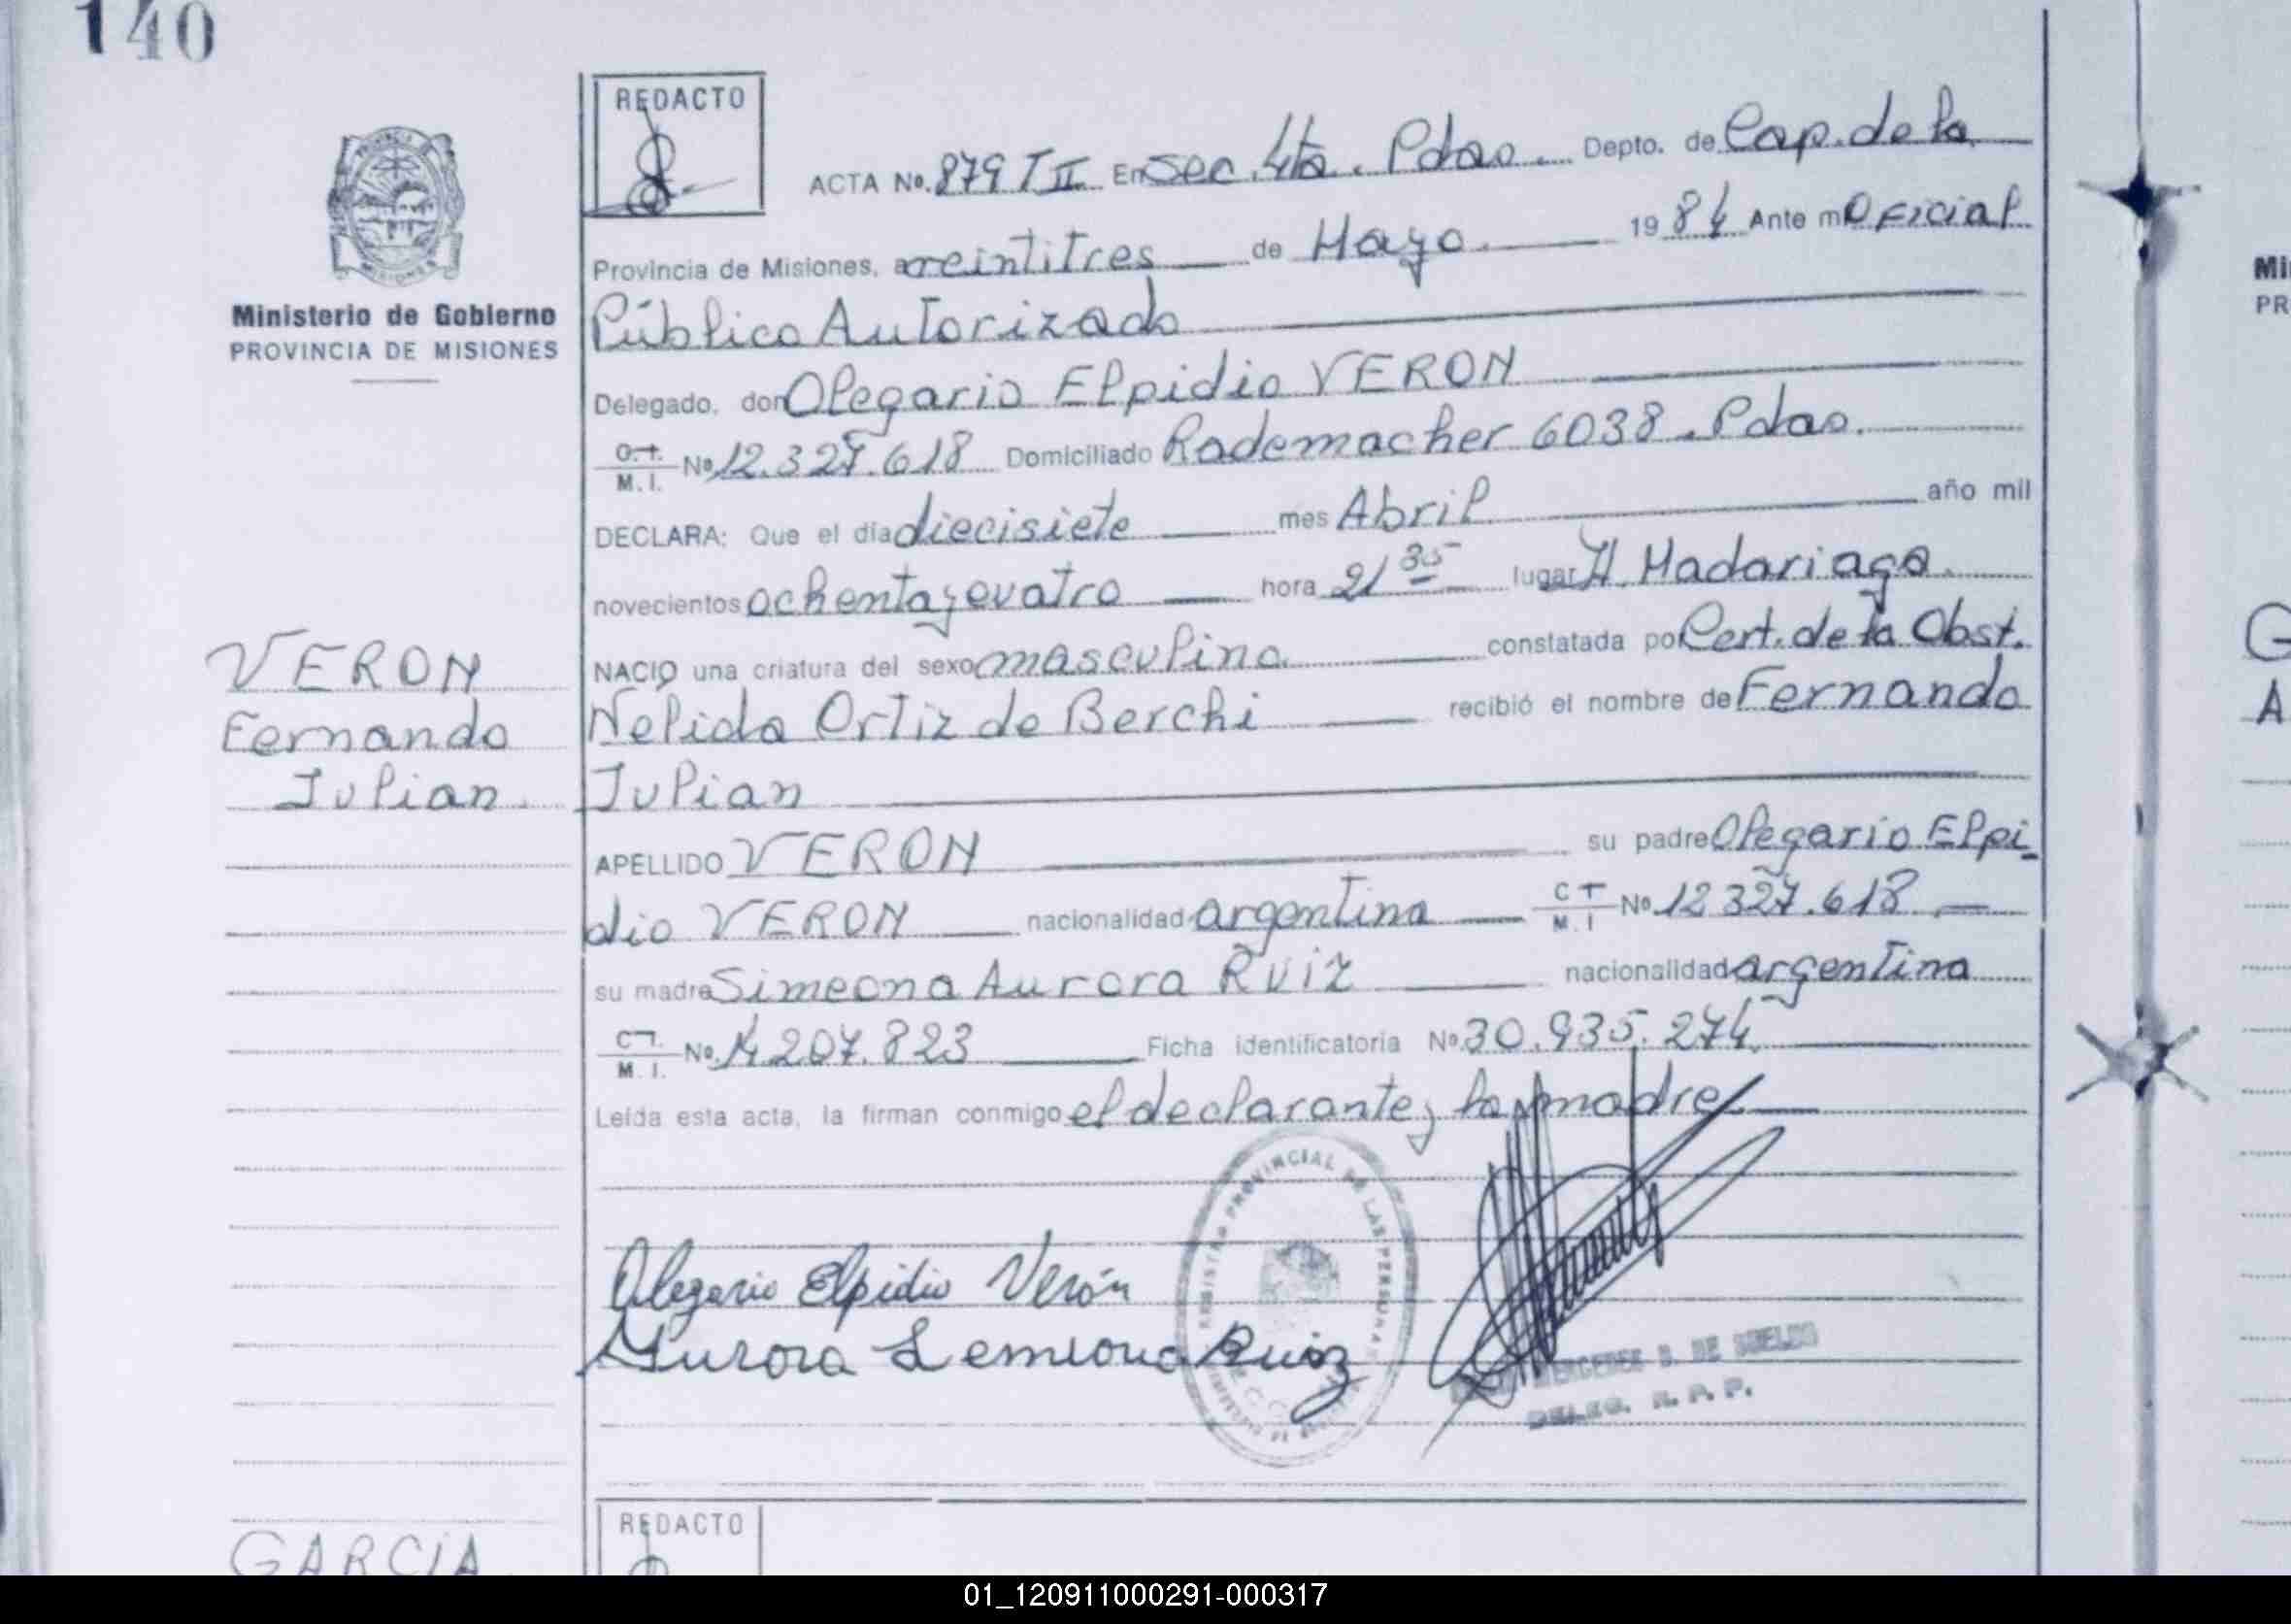 140
REDACTO
ACTA No. 879 T II En Sec. 4ta. Pdas. Depto. de Cap. de la
Provincia de Misiones, a veintitres de Mayo 1984 Ante mí Oficial
Público Autorizado
Ministerio de Gobierno
PROVINCIA DE MISIONES
Delegado, don Olegario Elpidio VERON
M. I. No 12.327.618 Domiciliado Rademacher 6038. Pdas.
DECLARA: Que el día diecisiete mes Abril año mil
novecientos ochenta y cuatro hora 21 35 lugar H. Madariaga.
VERON
NACIO una criatura del sexo masculino constatada por Cert. de la Obst.
Fernando
Nelida Ortiz de Berchi recibió el nombre de Fernando
Julian
Julian
APELLIDO VERON su padre Olegario Elpi
dio VERON nacionalidad argentina C T M. I No 12 327.618
su madre Simeona Aurora Ruiz nacionalidad argentina
M. I. No. 14.207.823 Ficha identificatoria No. 30.935.274
Leída esta acta, la firman conmigo el declarante y la madre
REGISTRO PROVINCIAL DE LAS PERSONAS
Olegario Elpidio Verón
Aurora Semiona Ruiz
MERCEDES B. DE SUELDO
DELEG. R. P. P.
REDACTO
GARCIA
Mi
PR
G
A
01_120911000291-000317